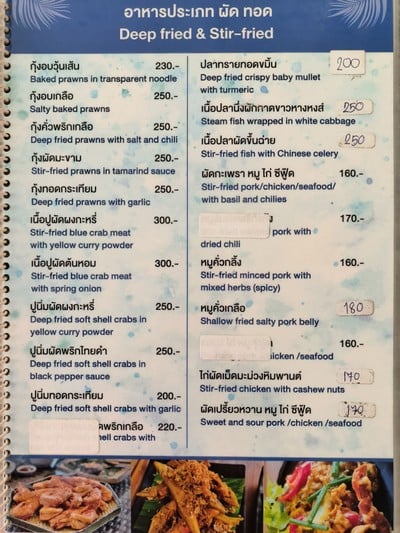 อาหารประเภท ผัด ทอด
Deep fried & Stir-fried
กุ้งอบวุ้นเส้น 230.-
Baked prawns in transparent noodle
กุ้งอบเกลือ 250.-
Salty baked prawns
กุ้งคั่วพริกเกลือ 250.-
Deep fried prawns with salt and chili
กุ้งผัดมะขาม 250.-
Stir-fried prawns in tamarind sauce
กุ้งทอดกระเทียม 250.-
Deep fried prawns with garlic
เนื้อปูผัดผงกะหรี่ 300.-
Stir-fried blue crab meat
with yellow curry powder
เนื้อปูผัดต้นหอม 300.-
Stir-fried blue crab meat
with spring onion
ปูนิ่มผัดผงกะหรี่ 250.-
Deep fried soft shell crabs in
yellow curry powder
ปูนิ่มผัดพริกไทยดำ 250.-
Deep fried soft shell crabs in
black pepper sauce
ปูนิ่มทอดกระเทียม 200.-
Deep fried soft shell crabs with garlic
พริกเกลือ 220.-
shell crabs with
ปลาทรายทอดขมิ้น 200
Deep fried crispy baby mullet
with turmeric
เนื้อปลานึ่งผักกาดขาวหางหงส์ 250
Steam fish wrapped in white cabbage
เนื้อปลาผัดขึ้นฉ่าย 250
Stir-fried fish with Chinese celery
ผัดกะเพรา หมู ไก่ ซีฟู้ด 160.-
Stir-fried pork/chicken/seafood/
with basil and chilies
170.-
pork with
dried chili
หมูคั่วกลิ้ง 160.-
Stir-fried minced pork with
mixed herbs (spicy)
หมูคั่วเกลือ 180
Shallow fried salty pork belly
160.-
chicken /seafood
ไก่ผัดเม็ดมะม่วงหิมพานต์ 170
Stir-fried chicken with cashew nuts
ผัดเปรี้ยวหวาน หมู ไก่ ซีฟู้ด 170.-
Sweet and sour pork /chicken /seafood